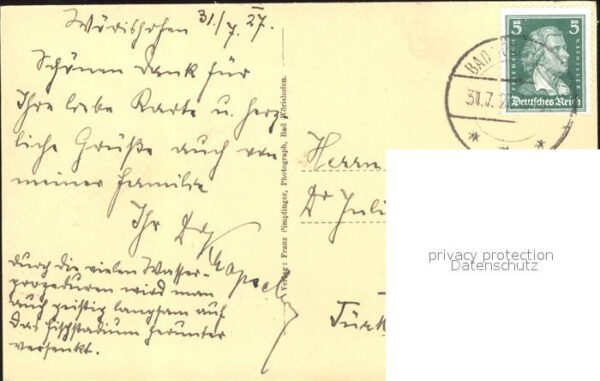 Wörishofen 31./7. 27.
Schönen Dank für
Ihre liebe Karte u. herz
liche Grüße auch von
meiner Familie
Ihr Dr
durch die vielen Wasser-
prozeduren wird man
auch geistig langsam auf
das Fischstadium herunter
versenkt.
Verlag: Franz Pimpfinger, Photograph, Bad Wörishofen.
5 5
FRIEDRICH V. SCHILLER
Deutsches Reich
BAD
31.7.2
Herrn
Dr Juli
Türk
privacy protection
Datenschutz